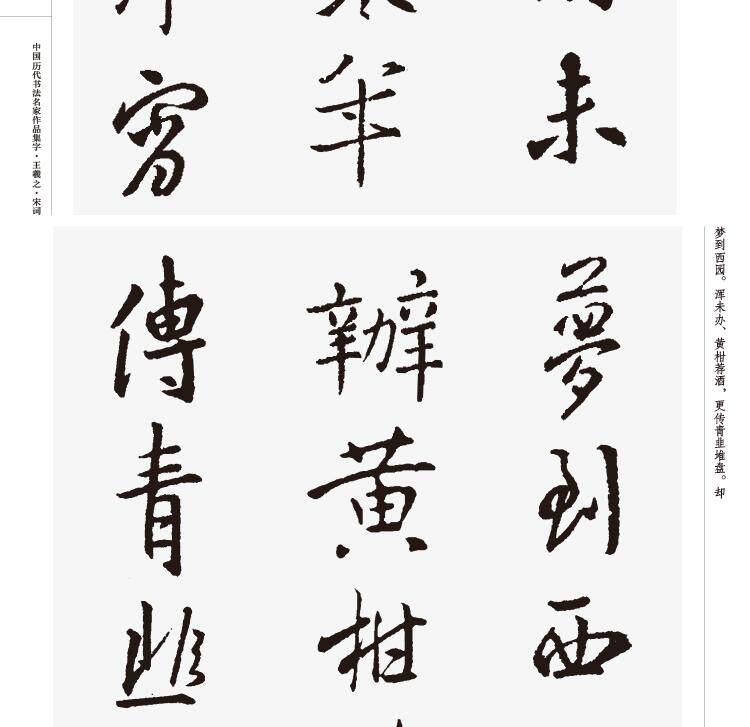 中国历代书法名家作品集字·王羲之·宋词
未
年
宵
梦到西园。浑未办、黄柑荐酒，更传青韭堆盘。却
夢到西
辦黄柑
傳青韭